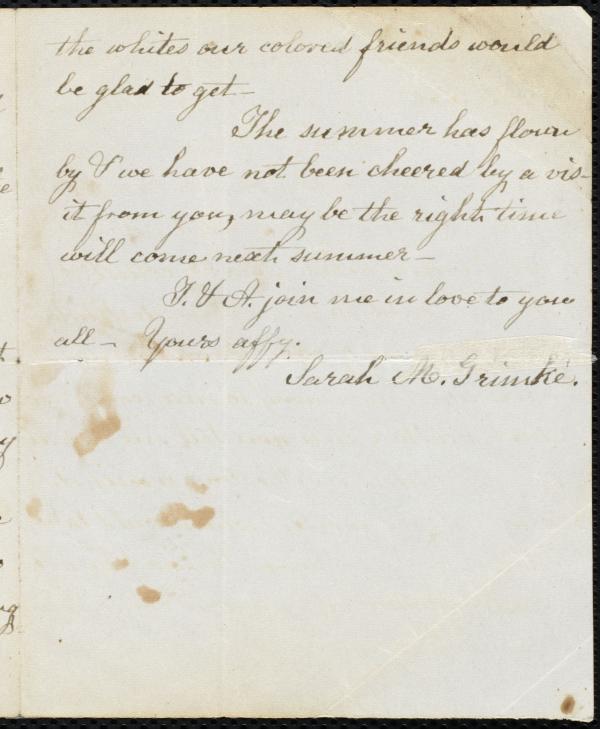 the whites our colored friends would
be glad to get—
The summer has flown
by & we have not been cheered by a vis-
it from you, may be the right time
will come next summer—
T. & A. join me in love to you
all— Yours affy.
Sarah M. Grimké.